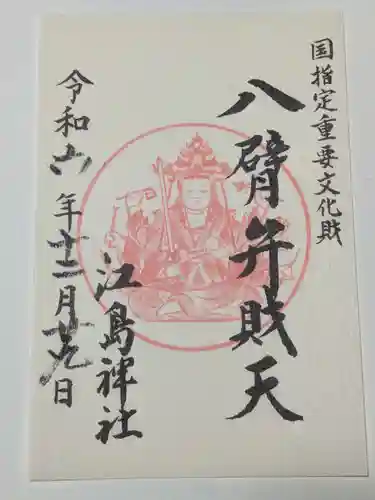 国指定重要文化財
八臂弁財天
江島神社
令和六年十二月廿九日